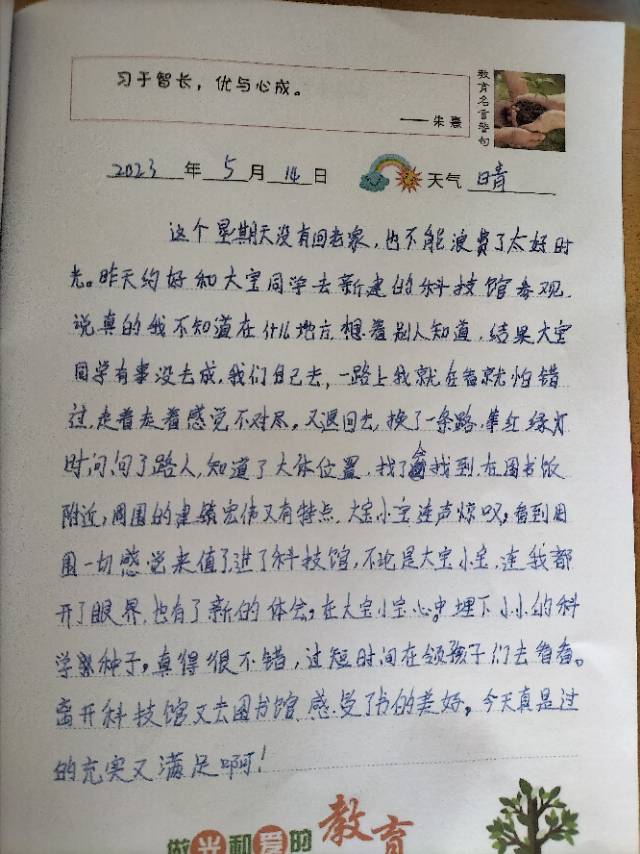 习于智长，优与心成。
——朱熹
教育名言警句
2023年5月14日 天气 晴
这个星期天没有回老家，也不能浪费了太好时
光。昨天约好和大宝同学去新建的科技馆参观，
说真的我不知道在什么地方，想着别人知道，结果大宝
同学有事没去成，我们自己去，一路上我就在看就怕错
过，走着走着感觉不对尽，又退回去，换了一条路，等红绿灯
时间，问了路人，知道了大体位置，找了会找到，在图书馆
附近，周围的建筑宏伟又有特点，大宝小宝连声惊叹，看到周
围一切感觉来值了，进了科技馆，不论是大宝小宝，连我都
开了眼界，也有了新的体会，在大宝小宝心中埋下小小的科
学种子，真得很不错，过短时间在领孩子们去看看。
离开科技馆又去图书馆，感受了书的美好，今天真是过
的充实又满足啊！
做光和爱的教育